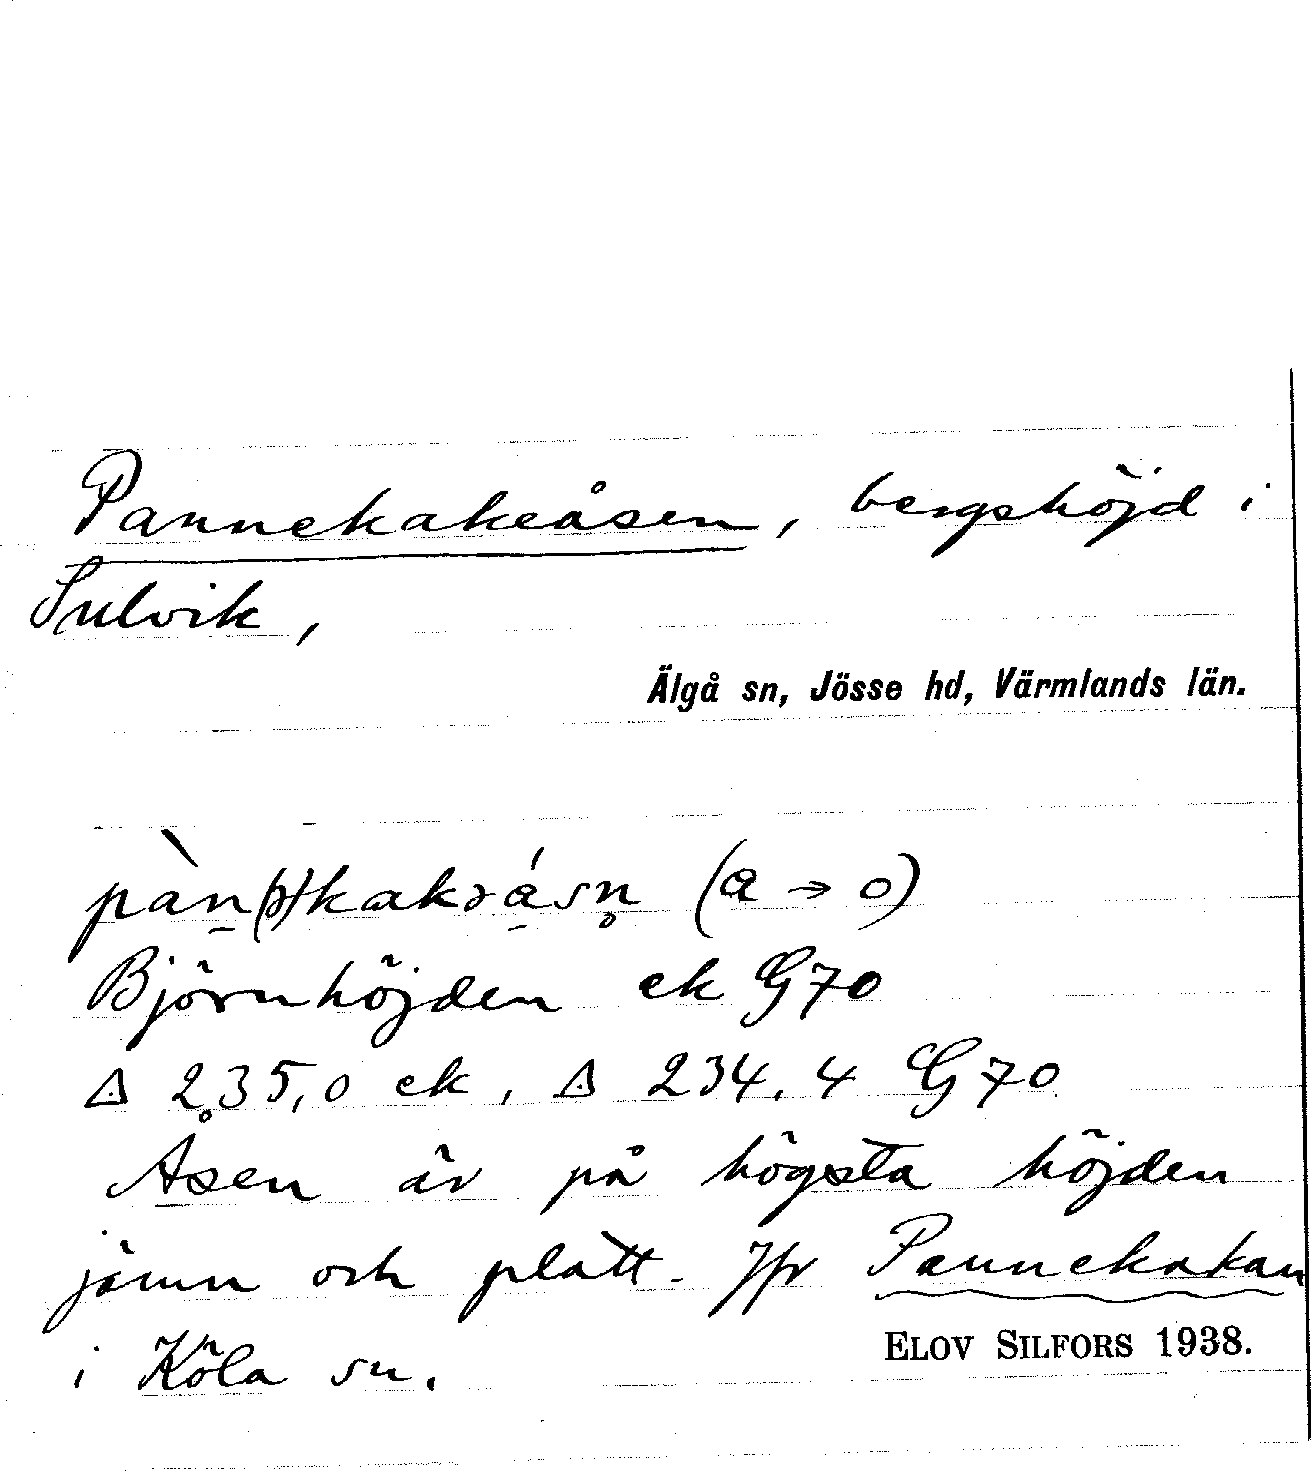 Pannekakeåsen, bergshöjd i
Sulvik,
Älgå sn, Jösse hd, Värmlands län.
pàn(ə)kakəásn̥ (a → o)
Björnhöjden ek G70
△ 235,0 ek, △ 234.4 G70
Åsen är på högsta höjden
jämn och platt. Jfr Pannekakan
i Köla sn.
ELOV SILFORS 1938.